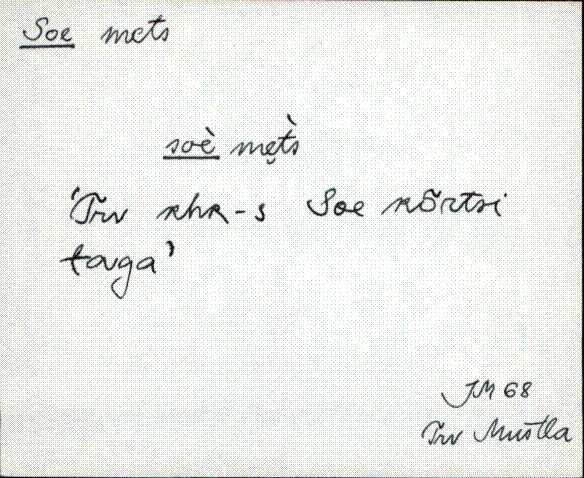 Soe mets
soè mę̀tš
'Trv khk-s Soe kõrtsi
taga'
JM 68
Trv Mustla